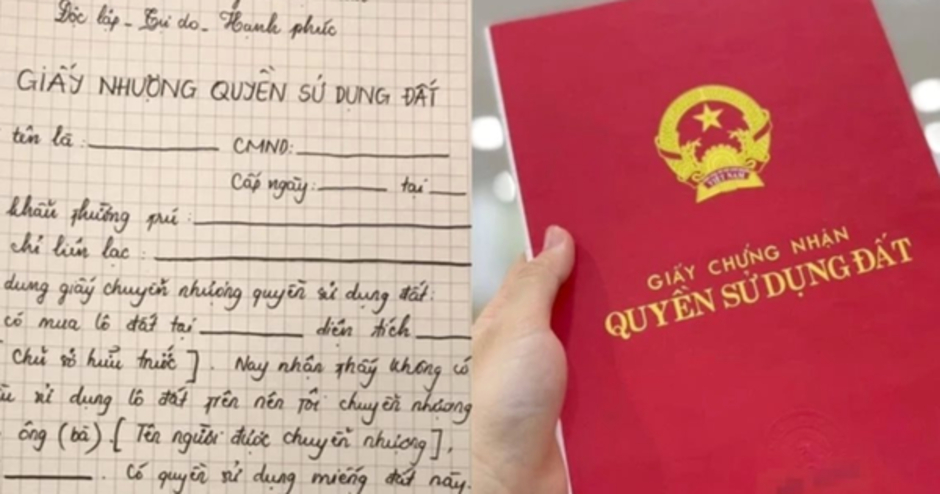 Độc lập - Tự do - Hạnh phúc
GIẤY NHƯỢNG QUYỀN SỬ DỤNG ĐẤT
tên là: CMND:
Cấp ngày: tại
khẩu thường trú:
chỉ liên lạc:
dung giấy chuyển nhượng quyền sử dụng đất:
có mua lô đất tại diện tích
Chủ sở hữu trước]. Nay nhận thấy không có
sử dụng lô đất trên nên tôi chuyển nhượng
ông (bà) [Tên người được chuyển nhượng],
Có quyền sử dụng miếng đất này.
VIỆT NAM
GIẤY CHỨNG NHẬN
QUYỀN SỬ DỤNG ĐẤT